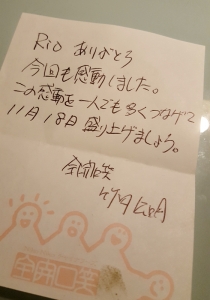 Rio ありがとう
今回も感動しました。
この感動を一人でも多くつなげて
11月18日盛り上げましょう。
全開口笑
全開口笑